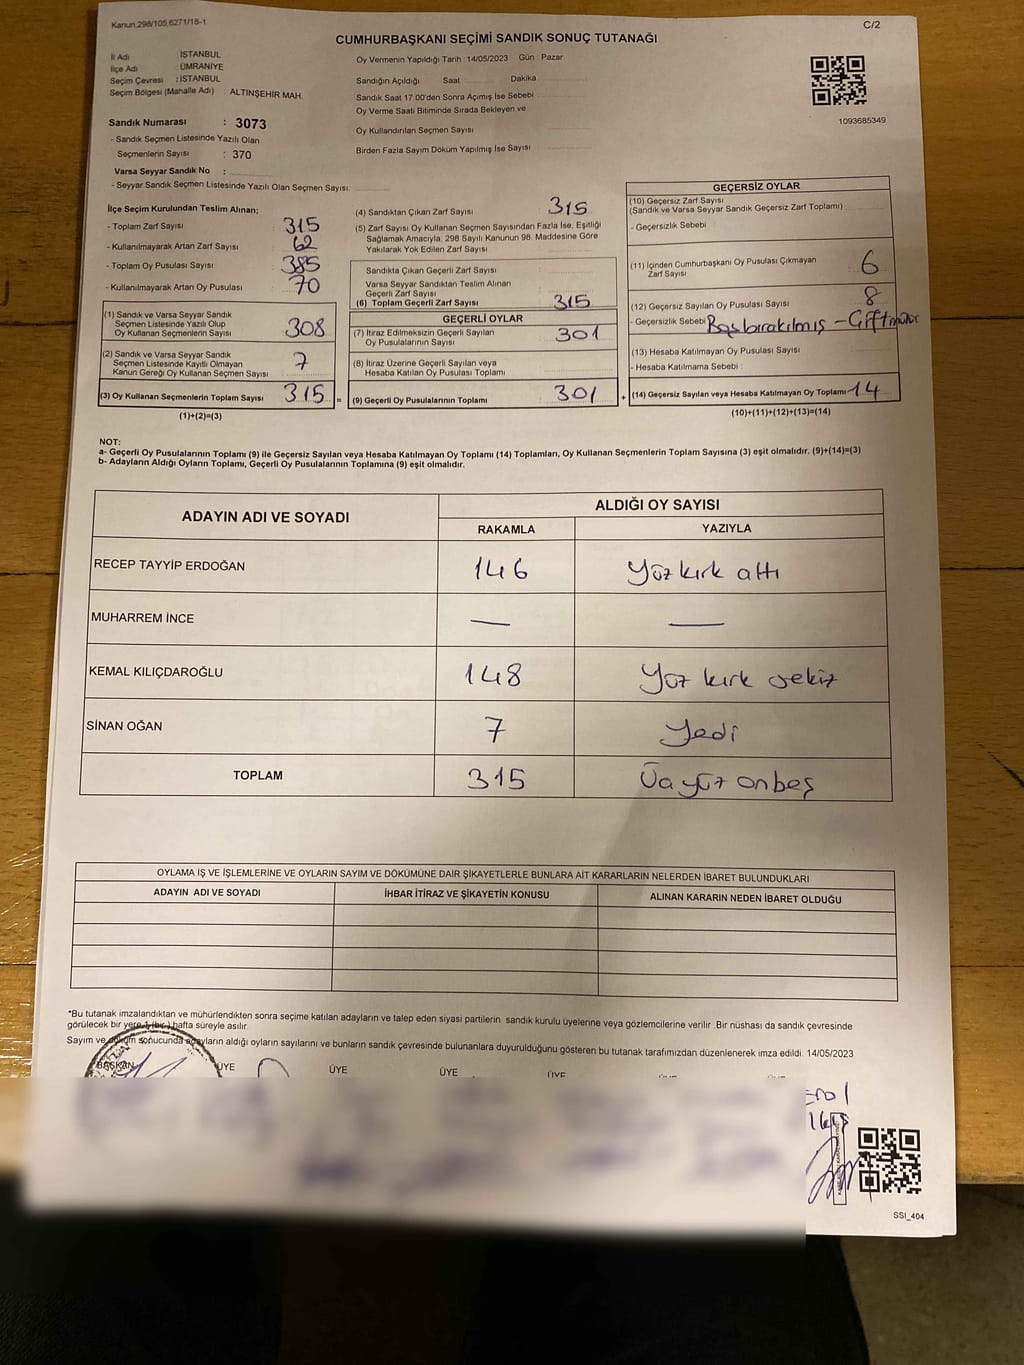 Kanun:298/105,6271/18-1
C/2
CUMHURBAŞKANI SEÇİMİ SANDIK SONUÇ TUTANAĞI
İl Adı : İSTANBUL
İlçe Adı : ÜMRANİYE
Seçim Çevresi : İSTANBUL
Seçim Bölgesi (Mahalle Adı) : ALTINŞEHİR MAH.
Sandık Numarası : 3073
- Sandık Seçmen Listesinde Yazılı Olan
Seçmenlerin Sayısı : 370
Varsa Seyyar Sandık No :
- Seyyar Sandık Seçmen Listesinde Yazılı Olan Seçmen Sayısı:
Oy Vermenin Yapıldığı Tarih :14/05/2023 Gün : Pazar
Sandığın Açıldığı Saat Dakika
Sandık Saat 17.00'den Sonra Açımış İse Sebebi
Oy Verme Saati Bitiminde Sırada Bekleyen ve
Oy Kullandırılan Seçmen Sayısı
Birden Fazla Sayım Döküm Yapılmış İse Sayısı
1093685349
İlçe Seçim Kurulundan Teslim Alınan;
- Toplam Zarf Sayısı 315
- Kullanılmayarak Artan Zarf Sayısı 62
- Toplam Oy Pusulası Sayısı 385
- Kullanılmayarak Artan Oy Pusulası 70
(1) Sandık ve Varsa Seyyar Sandık
Seçmen Listesinde Yazılı Olup
Oy Kullanan Seçmenlerin Sayısı 308
(2) Sandık ve Varsa Seyyar Sandık
Seçmen Listesinde Kayıtlı Olmayan
Kanun Gereği Oy Kullanan Seçmen Sayısı 7
(3) Oy Kullanan Seçmenlerin Toplam Sayısı 315 =
(1)+(2)=(3)
(4) Sandıktan Çıkan Zarf Sayısı 315
(5) Zarf Sayısı Oy Kullanan Seçmen Sayısından Fazla İse, Eşitliği
Sağlamak Amacıyla; 298 Sayılı Kanunun 98. Maddesine Göre
Yakılarak Yok Edilen Zarf Sayısı
Sandıkta Çıkan Geçerli Zarf Sayısı
Varsa Seyyar Sandıktan Teslim Alınan
Geçerli Zarf Sayısı
(6) Toplam Geçerli Zarf Sayısı 315
GEÇERLİ OYLAR
(7) İtiraz Edilmeksizin Geçerli Sayılan
Oy Pusulalarının Sayısı 301
(8) İtiraz Üzerine Geçerli Sayılan veya
Hesaba Katılan Oy Pusulası Toplamı
(9) Geçerli Oy Pusulalarının Toplamı 301 +
GEÇERSİZ OYLAR
(10) Geçersiz Zarf Sayısı
(Sandık ve Varsa Seyyar Sandık Geçersiz Zarf Toplamı)
- Geçersizlik Sebebi
(11) İçinden Cumhurbaşkanı Oy Pusulası Çıkmayan
Zarf Sayısı 6
(12) Geçersiz Sayılan Oy Pusulası Sayısı 8
- Geçersizlik Sebebi Boş bırakılmış - Çift mühür
(13) Hesaba Katılmayan Oy Pusulası Sayısı
- Hesaba Katılmama Sebebi
(14) Geçersiz Sayılan veya Hesaba Katılmayan Oy Toplamı 14
(10)+(11)+(12)+(13)=(14)
NOT:
a- Geçerli Oy Pusulalarının Toplamı (9) ile Geçersiz Sayılan veya Hesaba Katılmayan Oy Toplamı (14) Toplamları, Oy Kullanan Seçmenlerin Toplam Sayısına (3) eşit olmalıdır. (9)+(14)=(3)
b- Adayların Aldığı Oyların Toplamı, Geçerli Oy Pusulalarının Toplamına (9) eşit olmalıdır.
ADAYIN ADI VE SOYADI
ALDIĞI OY SAYISI
RAKAMLA YAZIYLA
RECEP TAYYİP ERDOĞAN 146 Yüz kırk altı
MUHARREM İNCE — —
KEMAL KILIÇDAROĞLU 148 Yüz kırk sekiz
SİNAN OĞAN 7 Yedi
TOPLAM 315 Üç yüz onbeş
OYLAMA İŞ VE İŞLEMLERİNE VE OYLARIN SAYIM VE DÖKÜMÜNE DAİR ŞİKAYETLERLE BUNLARA AİT KARARLARIN NELERDEN İBARET BULUNDUKLARI
ADAYIN ADI VE SOYADI İHBAR İTİRAZ VE ŞİKAYETİN KONUSU ALINAN KARARIN NEDEN İBARET OLDUĞU
*Bu tutanak imzalandıktan ve mühürlendikten sonra seçime katılan adayların ve talep eden siyasi partilerin sandık kurulu üyelerine veya gözlemcilerine verilir. Bir nüshası da sandık çevresinde
görülecek bir yere 1 (bir) hafta süreyle asılır.
Sayım ve döküm sonucunda adayların aldığı oyların sayılarını ve bunların sandık çevresinde bulunanlara duyurulduğunu gösteren bu tutanak tarafımızdan düzenlenerek imza edildi. 14/05/2023
BAŞKAN ÜYE ÜYE ÜYE ÜYE
SSI_404